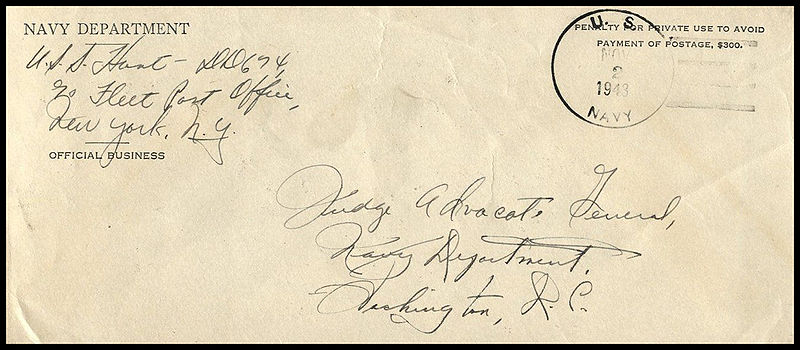 NAVY DEPARTMENT
U.S.S. Hunt - DD674,
℅ Fleet Post Office,
New York, N.Y.
OFFICIAL BUSINESS
PENALTY FOR PRIVATE USE TO AVOID
PAYMENT OF POSTAGE, $300.
U. S.
NOV
2
1943
NAVY
Judge Advocate General,
Navy Department,
Washington, D.C.